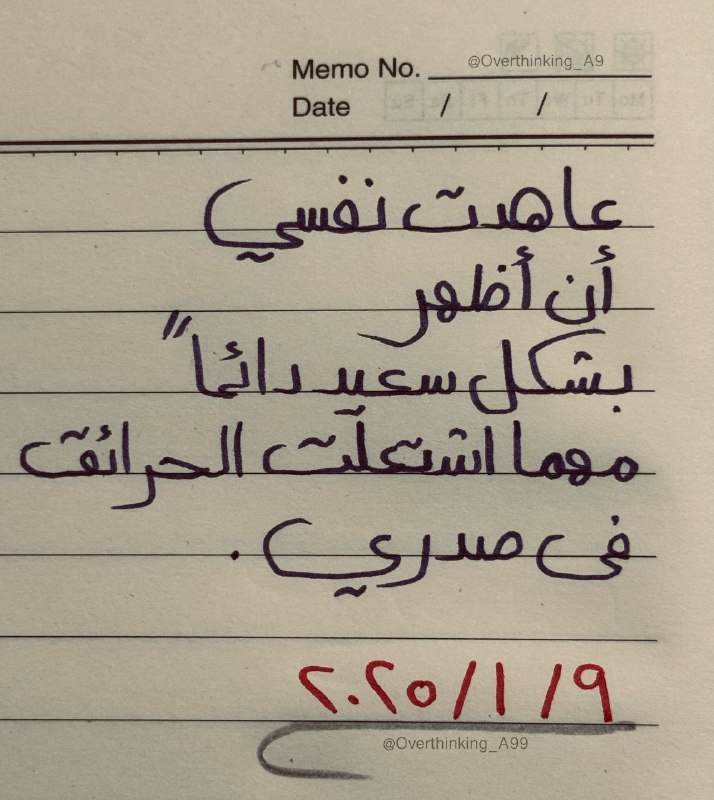 @Overthinking_A9
Memo No.
Date / /
عاهدت نفسي
أن أظهر
بشكل سعيد دائماً
مهما اشتعلت الحرائق
في صدري .
٢٠٢٥/١/٩
@Overthinking_A99